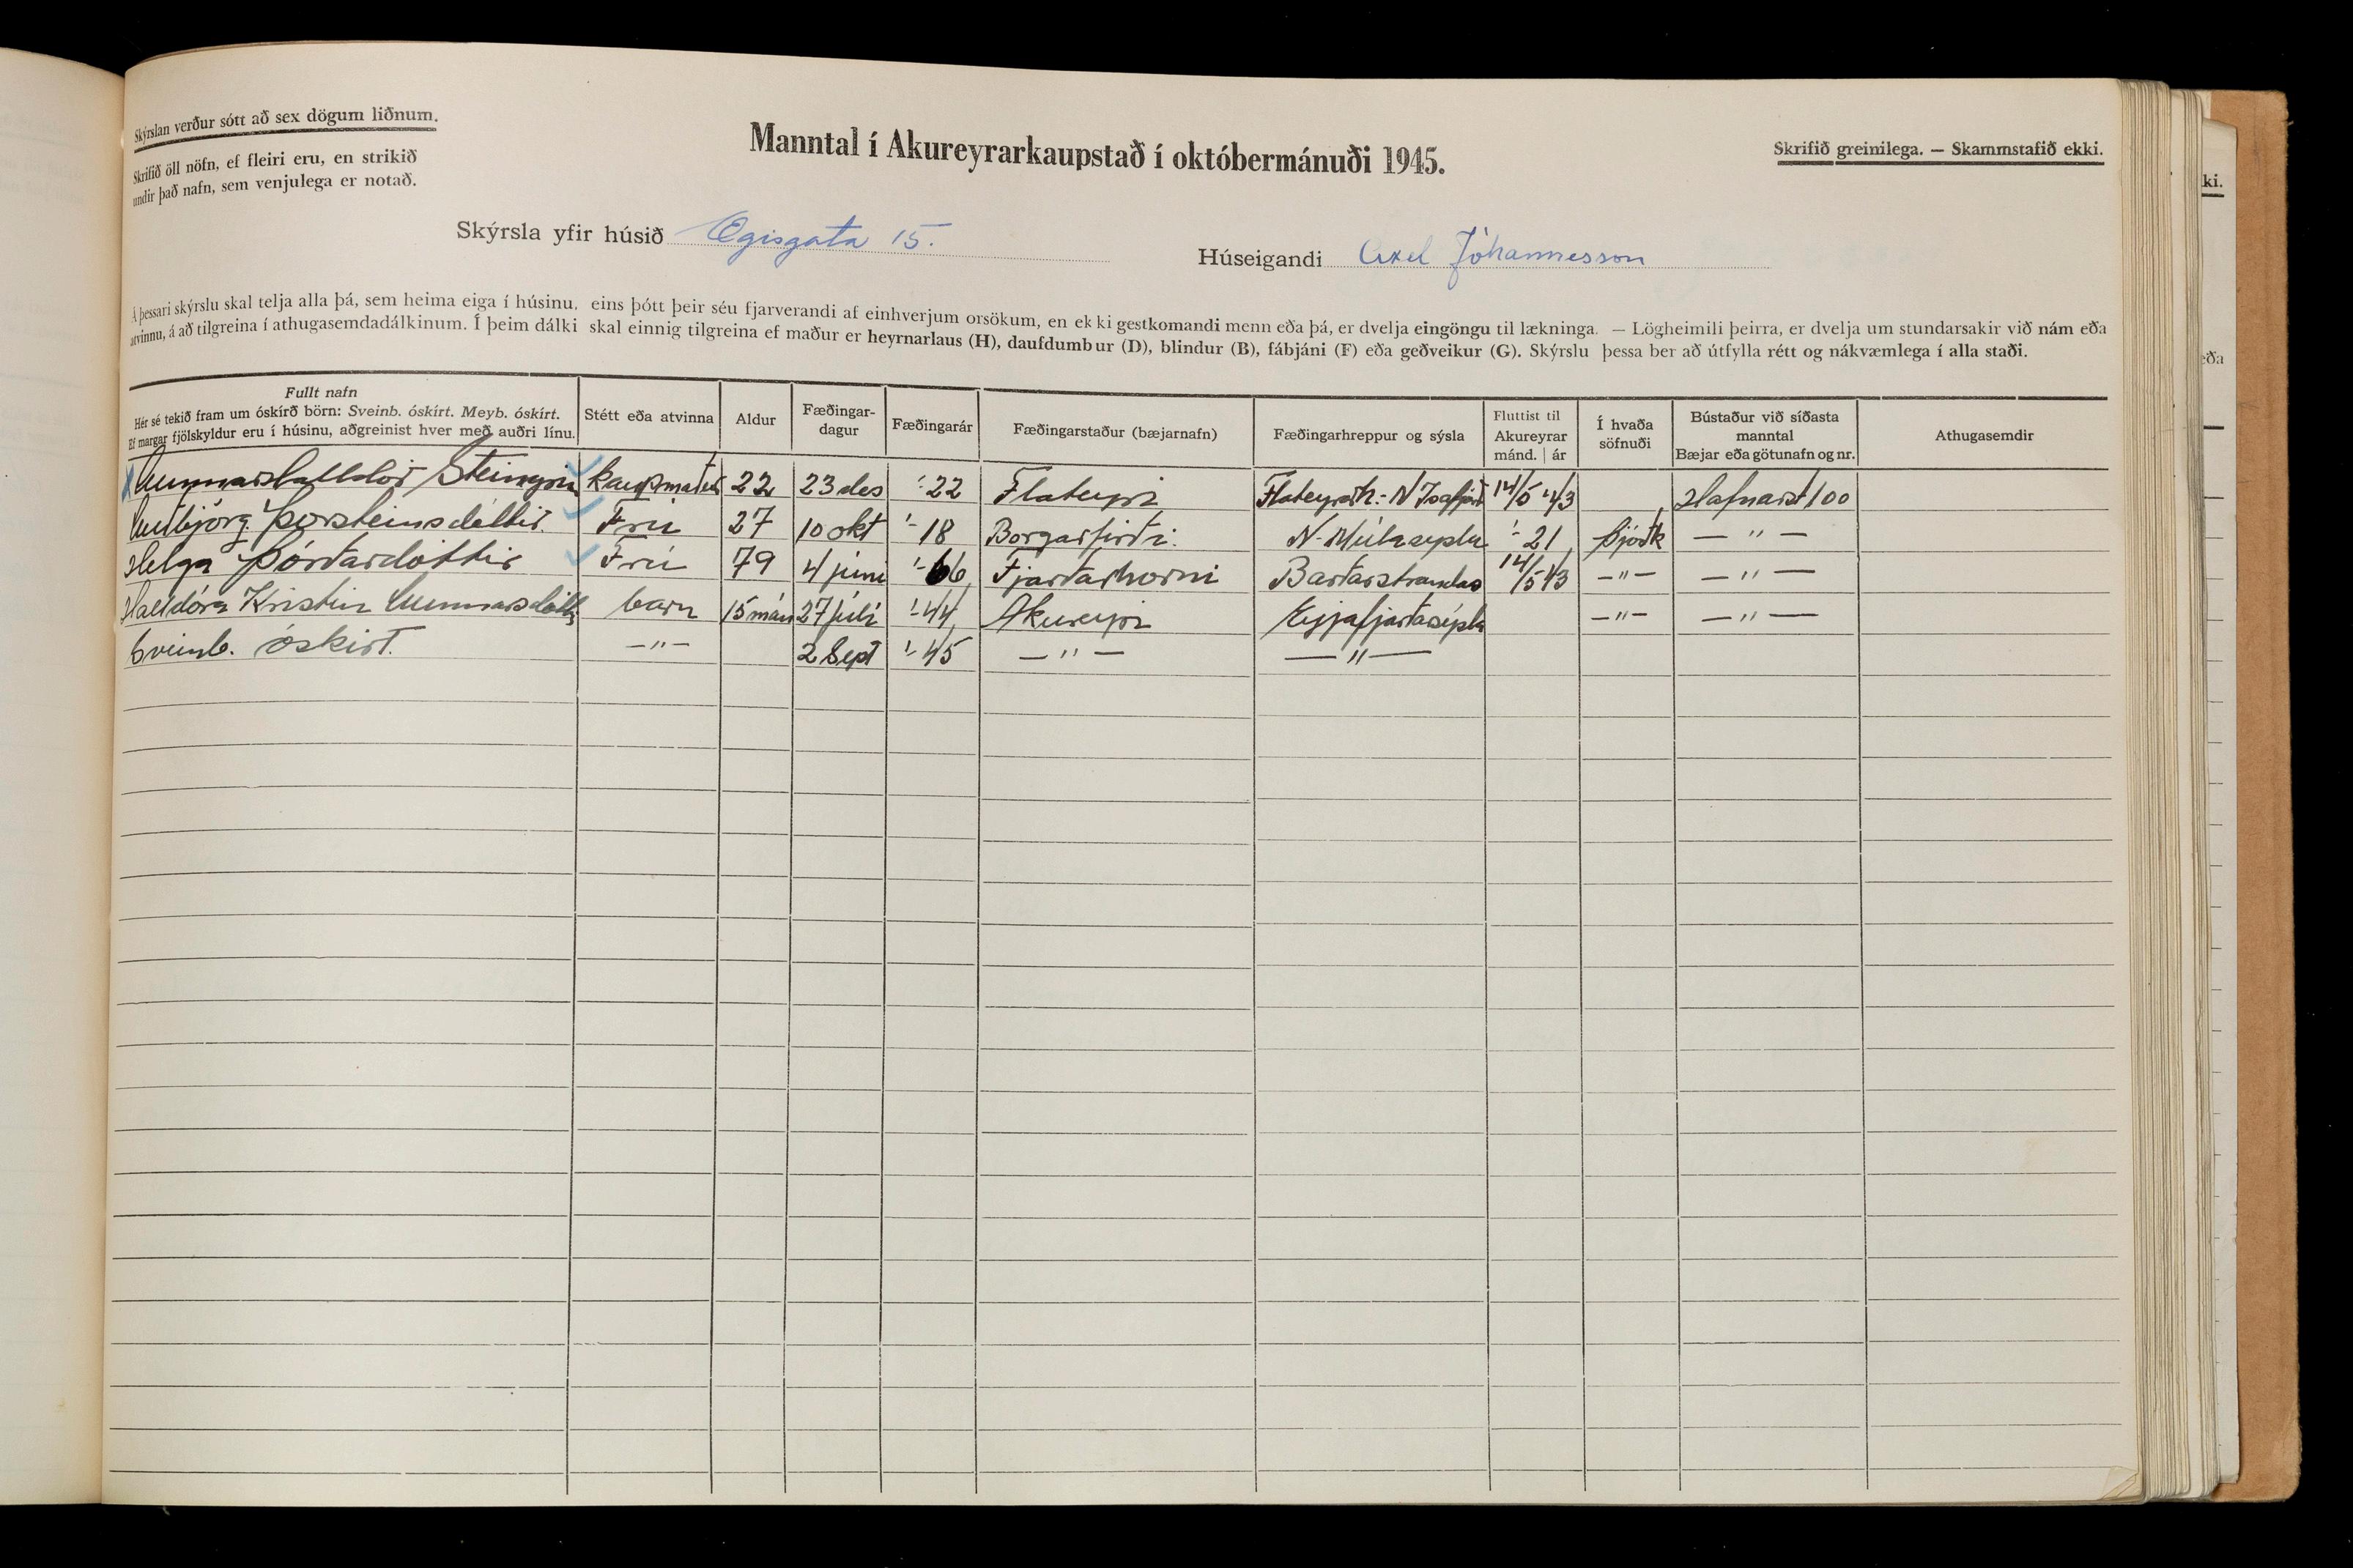 Skýrslan verður sótt að sex dögum liðnum.
Skrifið öll nöfn, ef fleiri eru, en strikið
undir það nafn, sem venjulega er notað.
Manntal í Akureyrarkaupstað í októbermánuði 1945.
Skrifið greinilega. — Skammstafið ekki.
Skýrsla yfir húsið Ægisgata 15.
Húseigandi Axel Jóhannesson
Á þessari skýrslu skal telja alla þá, sem heima eiga í húsinu, eins þótt þeir séu fjarverandi af einhverjum orsökum, en ekki gestkomandi menn eða þá, er dvelja eingöngu til lækninga. — Lögheimili þeirra, er dvelja um stundarsakir við nám eða
atvinnu, á að tilgreina í athugasemdadálkinum. Í þeim dálki skal einnig tilgreina ef maður er heyrnarlaus (H), daufdumbur (D), blindur (B), fábjáni (F) eða geðveikur (G). Skýrslu þessa ber að útfylla rétt og nákvæmlega í alla staði.
Fullt nafn
Hér sé tekið fram um óskírð börn: Sveinb. óskírt. Meyb. óskírt.
Ef margar fjölskyldur eru í húsinu, aðgreinist hver með auðri línu.
Stétt eða atvinna
Aldur
Fæðingar-
dagur
Fæðingarár
Fæðingarstaður (bæjarnafn)
Fæðingarhreppur og sýsla
Fluttist til
Akureyrar
mánd. | ár
Í hvaða
söfnuði
Bústaður við síðasta
manntal
Bæjar eða götunafn og nr.
Athugasemdir
Gunnar Halldór Steingrím kaupmaður 22 23 des '-22 Flateyri Flateyrarh.- N Ísafjörð 14/5 43 Hafnarst 100
Guðbjörg Þorsteinsdóttir. Frú 27 10 okt '-18 Borgarfirði. N-Múlasýslu '-21 Þjóðk — " —
Helga Þórðardóttir Frú 79 4 júní '-66 Fjarðarhorni Barðastrandas 14/5 43 — " — — " —
Halldóra Kristín Gunnarsdóttir barn 15 mán 27 júlí '-44 Akureyri Eyjafjarðasýslu — " — — " —
Sveinb. óskírt. — " — 2 Sept '-45 — " — — " —